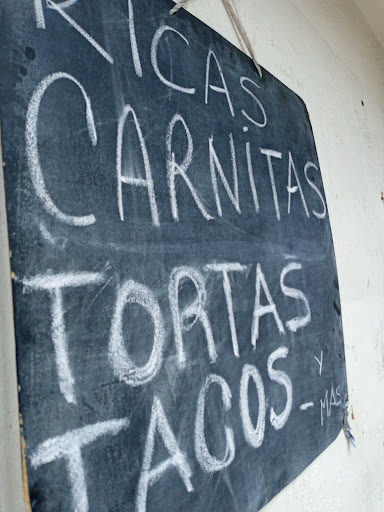 RICAS
CARNITAS
TORTAS
TACOS_ Y
MAS